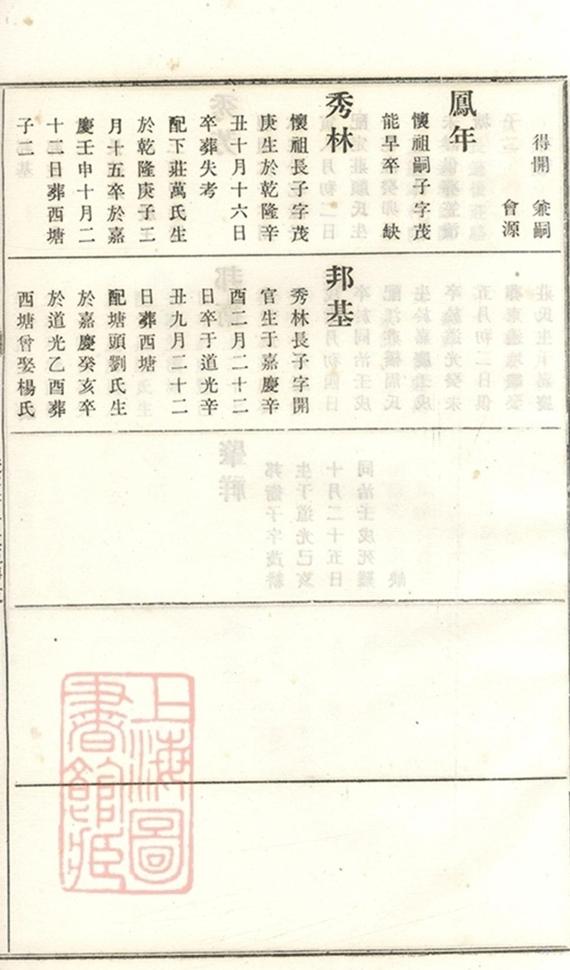 得開 兼嗣
會源
鳳年
懷祖嗣子字茂
能早卒 缺
秀林
懷祖長子字茂
庚生於乾隆辛
丑十月十六日
卒葬失考
配下莊萬氏生
於乾隆庚子三
月十五卒於嘉
慶壬申十月二
十二日葬西塘
子二
邦基
秀林長子字開
官生于嘉慶辛
酉二月二十二
日卒于道光辛
丑九月二十二
日葬西塘
配塘頭劉氏生
於嘉慶癸亥卒
於道光乙酉葬
西塘曾娶楊氏
上海圖
書館藏